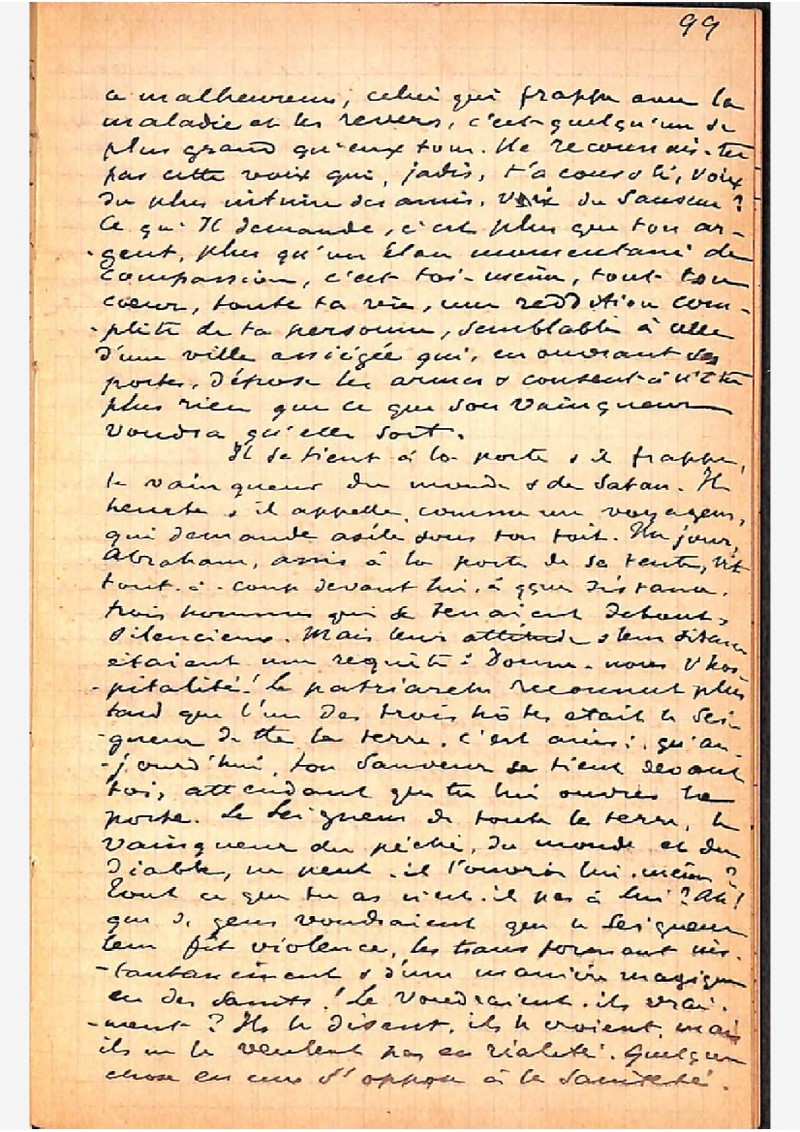 99
ce malheureux, celui qui frappe avec la
maladie et les revers, c'est quelqu'un de
plus grand qu'eux tous. Ne reconnais-tu
pas cette voix qui, jadis, t'a consolé, voix
du plus intime des amis, voix du Sauveur?
Ce qu'Il demande, c'est plus que ton ar-
gent, plus qu'un élan momentané de
compassion, c'est toi-même, tout ton
coeur, toute ta vie, une reddition com-
plète de ta personne, semblable à celle
d'une ville assiégée qui, en ouvrant ses
portes, dépose les armes & consent à n'être
plus rien que ce que son vainqueur
voudra qu'elle soit.
Il se tient à la porte & il frappe,
le vainqueur du monde & de Satan. Il
heurte & il appelle, comme un voyageur,
qui demande asile sous ton toit. Un jour,
Abraham, assis à la porte de sa tente, vit
tout-à-coup devant lui, à qque distance,
trois hommes qui se tenaient debout,
silencieux. Mais leur attitude & leur
étaient une requête: Donne-nous l'hos-
pitalité! Le patriarche reconnut plus
tard que l'un des trois hôtes était le Sei-
gneur de tte la terre. C'est ainsi, qu'au-
jourd'hui, ton Sauveur se tient devant
toi, attendant que tu lui ouvres la
porte. Le Seigneur de toute la terre, le
vainqueur du péché, du monde et du
diable, ne peut-il l'ouvrir lui-même?
Tout ce que tu as n'est-il pas à lui? Ah!
que de gens voudraient que le Seigneur
leur fît violence, les transformant ins-
tantanément & d'une manière magique
en des saints! Le voudraient-ils vrai-
ment? Ils le disent, ils le croient, mais
ils ne le veulent pas en réalité. Quelque
chose en eux s'oppose à la sainteté.